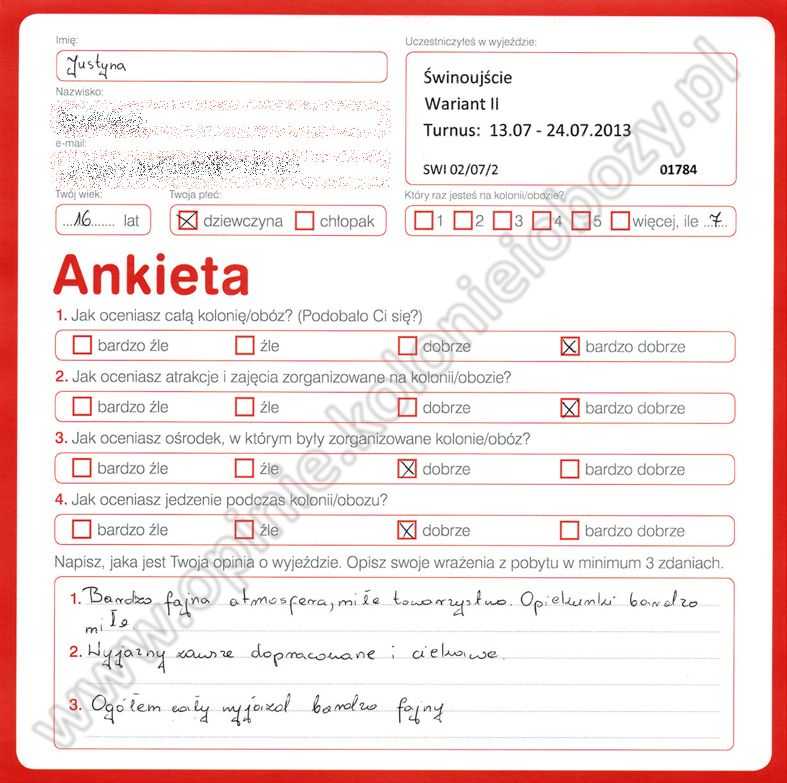 Imię:
Justyna
Uczestniczyłeś w wyjeździe:
Świnoujście
Wariant II
Turnus: 13.07 - 24.07.2013
SWI 02/07/2 01784
Nazwisko:
e-mail:
Twój wiek:
...16....... lat
Twoja płeć:
dziewczyna chłopak
Który raz jesteś na kolonii/obozie?
1 2 3 4 5 więcej, ile ..7..
Ankieta
1. Jak oceniasz całą kolonię/obóz? (Podobało Ci się?)
bardzo źle źle dobrze bardzo dobrze
2. Jak oceniasz atrakcje i zajęcia zorganizowane na kolonii/obozie?
bardzo źle źle dobrze bardzo dobrze
3. Jak oceniasz ośrodek, w którym były zorganizowane kolonie/obóz?
bardzo źle źle dobrze bardzo dobrze
4. Jak oceniasz jedzenie podczas kolonii/obozu?
bardzo źle źle dobrze bardzo dobrze
Napisz, jaka jest Twoja opinia o wyjeździe. Opisz swoje wrażenia z pobytu w minimum 3 zdaniach.
1. Bardzo fajna atmosfera, miłe towarzystwo. Opiekunki bardzo
miłe.
2. Wyjazny zawsze dopracowane i ciekawe.
3. Ogółem cały wyjazd bardzo fajny
www.opinie.kolonieiobozy.pl